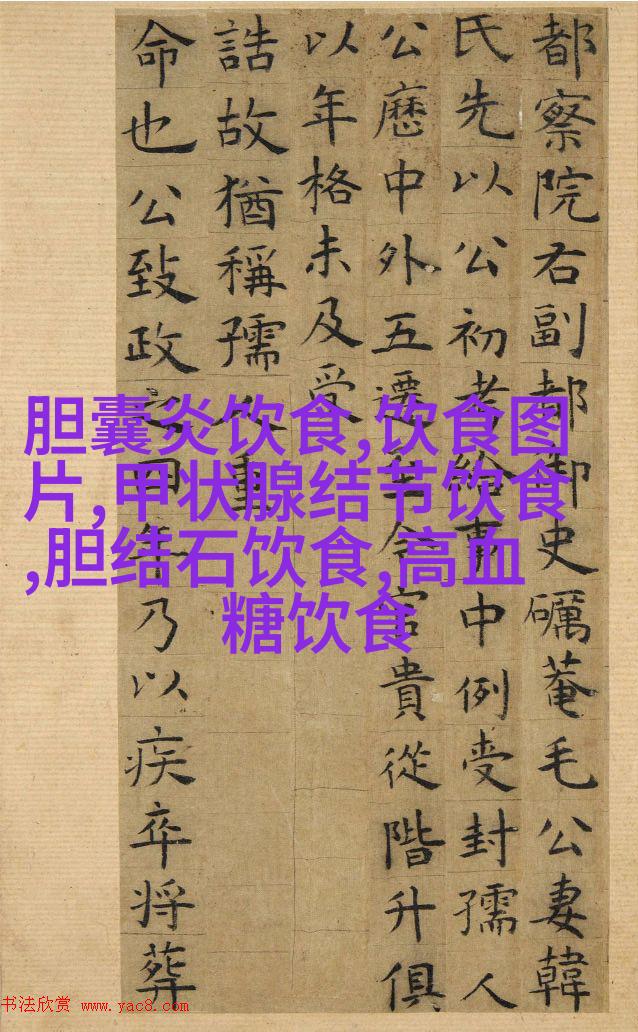 都察院右副都御史礪菴毛公妻韓
氏先以公初考給事中例受封孺人
公歷中外五遷至今官貴從階升俱
以年格未及受
誥故猶稱孺人重
命也公致政之四年乃以疾卒将葬
胆囊炎饮食,饮食图
片,甲状腺结节饮食
,胆结石饮食,高血
糖饮食
书法欣赏 www.yac8.com